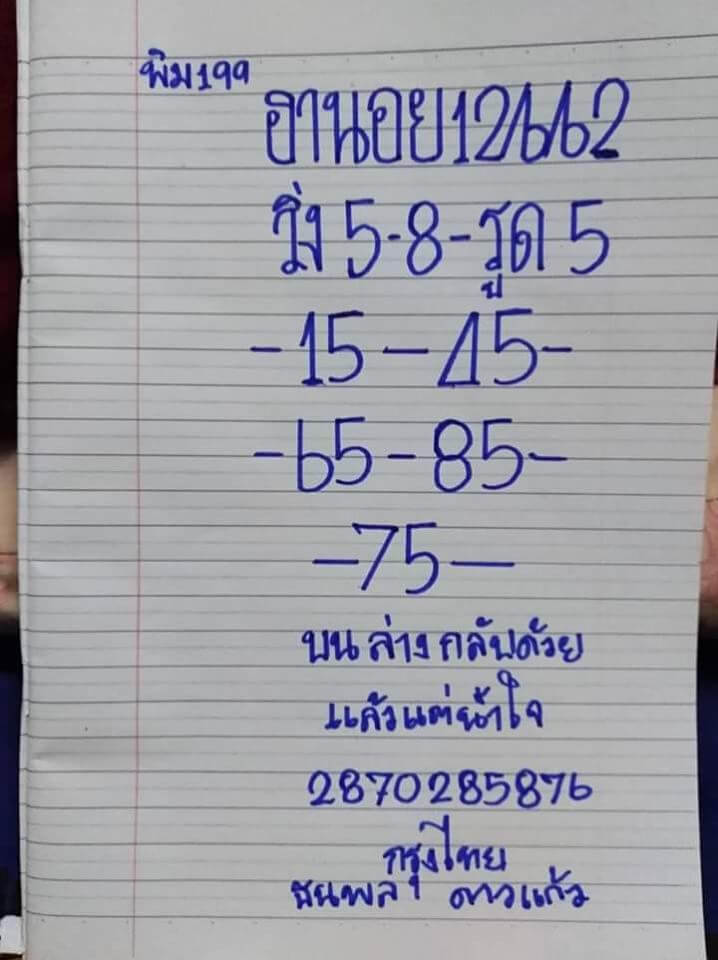 พิม199
ฮานอย12/6/62
วิ่ง 5-8-รูด 5
-15-45-
-65-85-
-75-
บน ล่าง กลับด้วย
แล้วแต่น้ำใจ
2870285876
กรุงไทย
ธนพล ดาวแก้ว